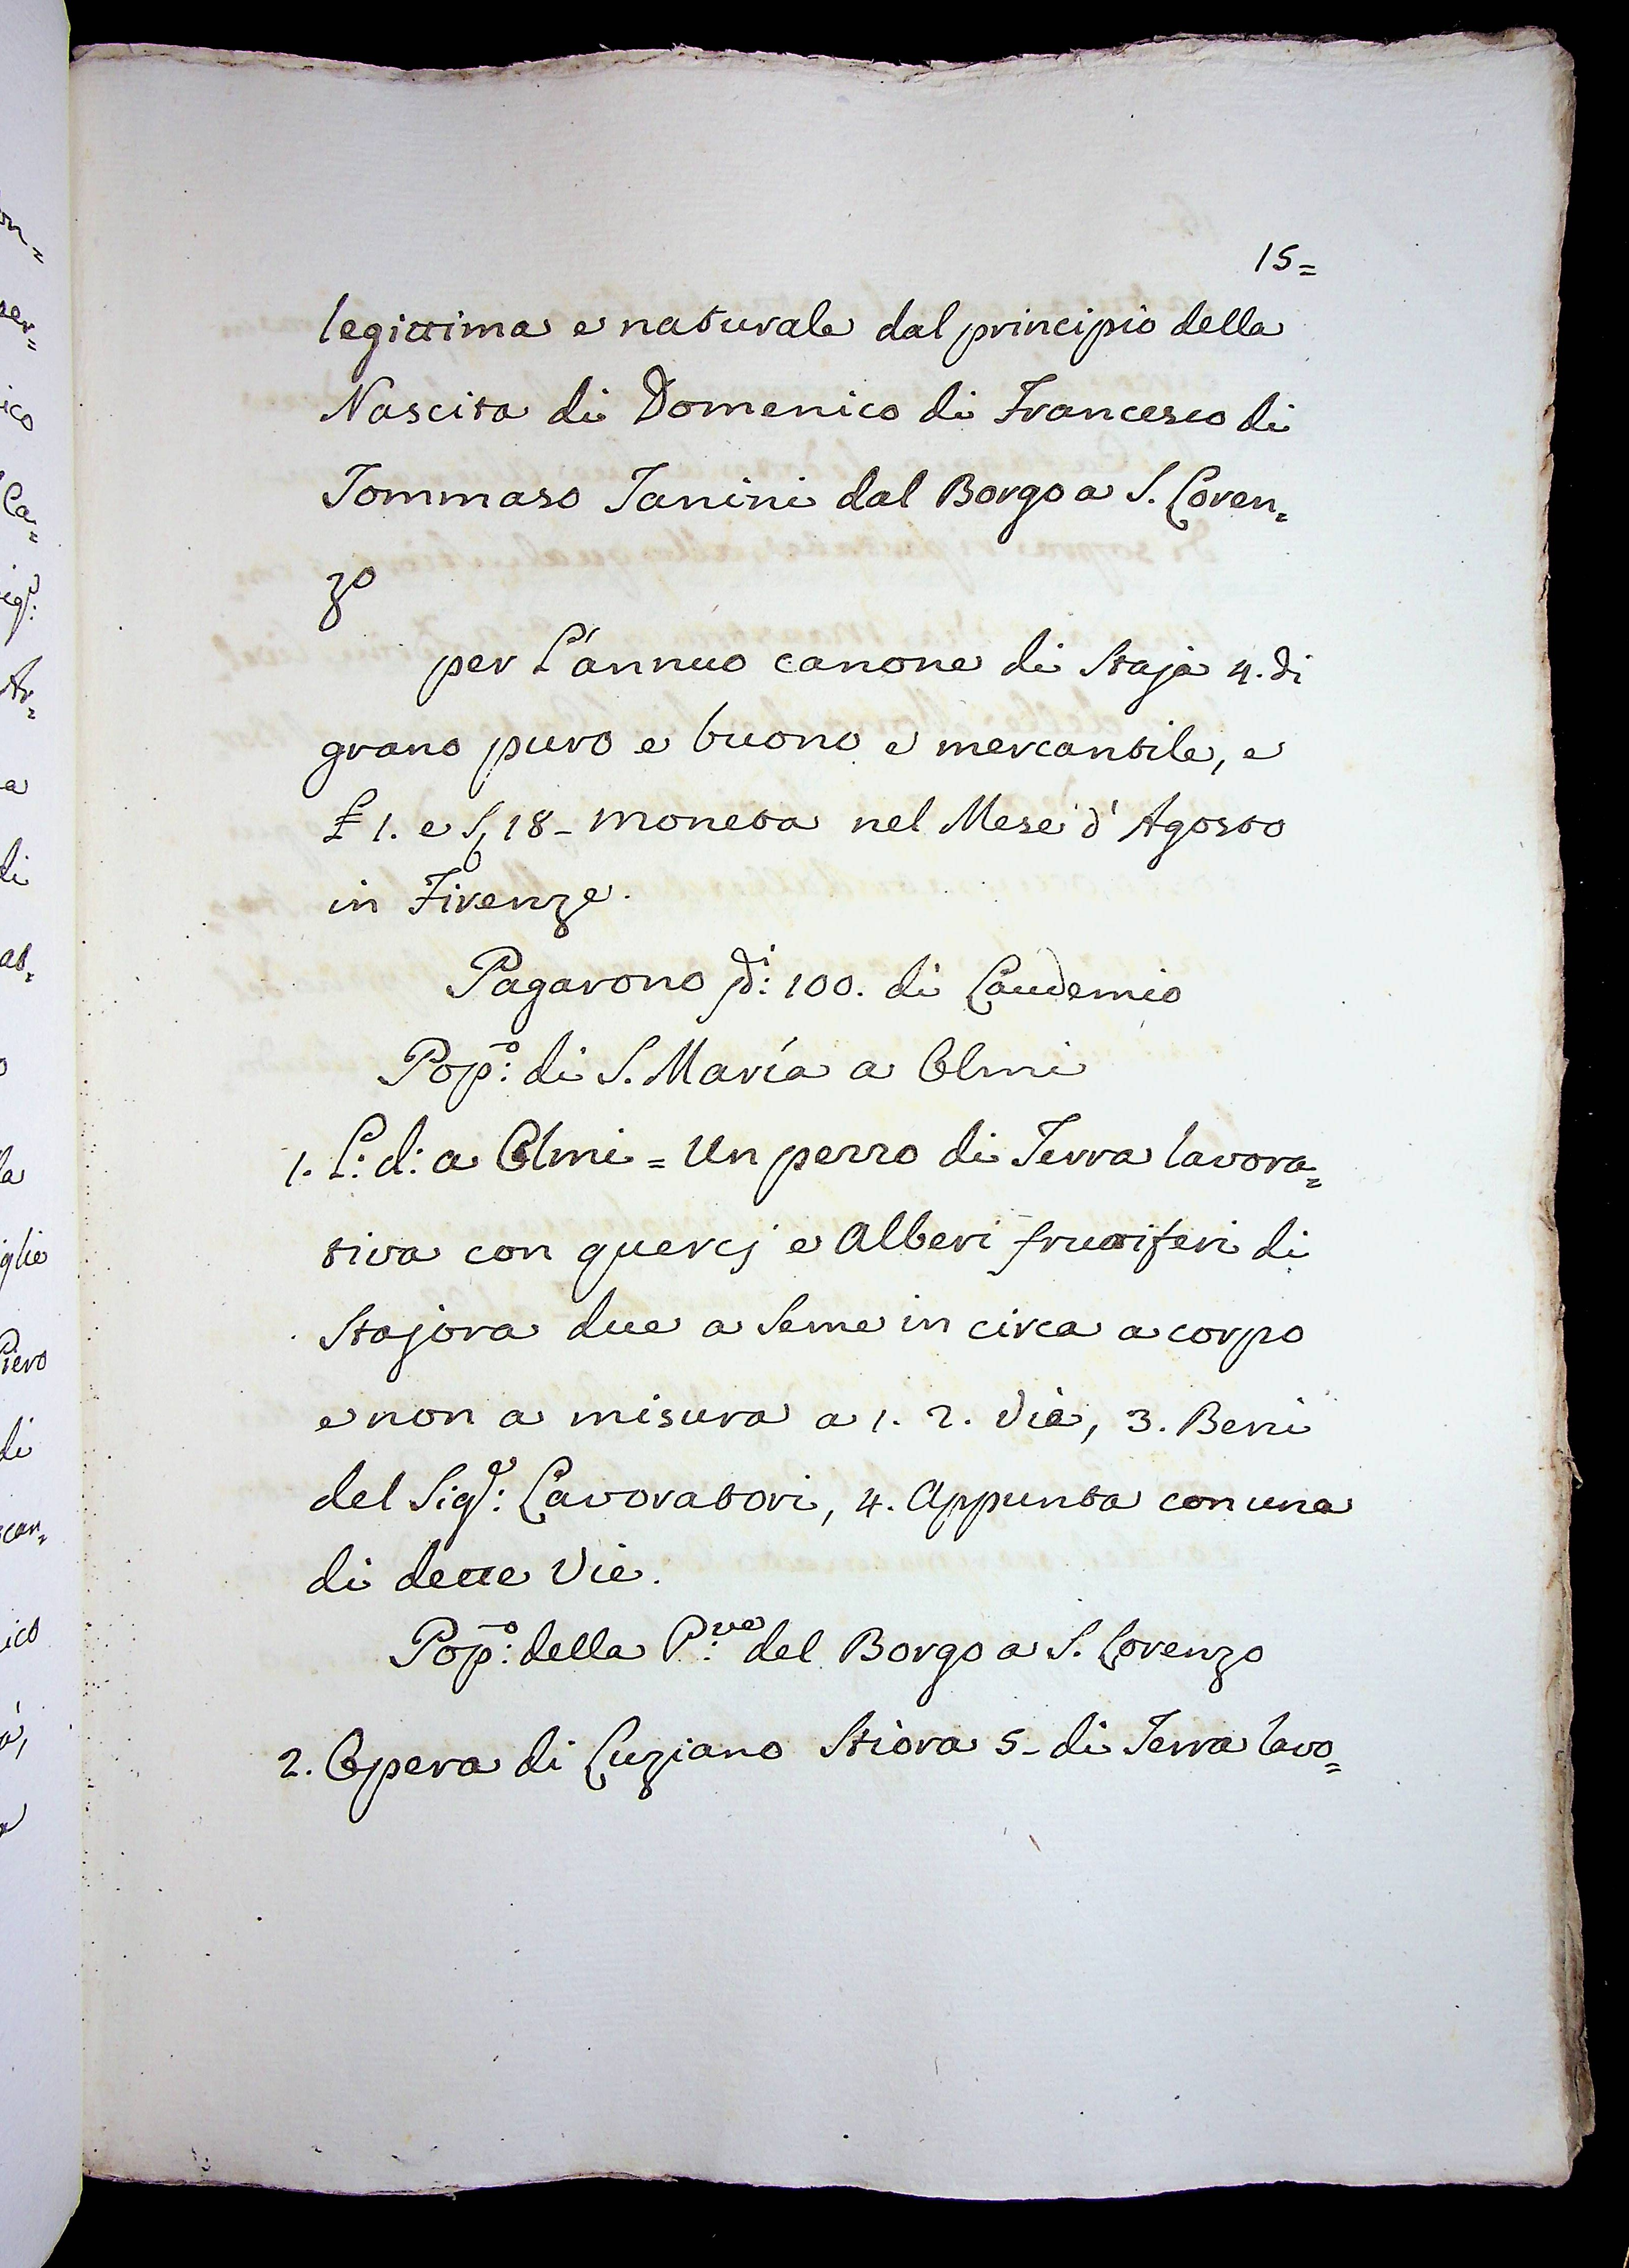 15=
legittima e naturale dal principio della
Nascita di Domenico di Francesco di
Tommaso Tanini dal Borgo a S. Loren=
zo
per L'annuo canone di Staja 4. di
grano puro e buono e mercantile, e
£ 1. e S, 18- moneta nel Mese d'Agosto
in Firenze.
Pagarono di: 100. di Laudemio
Pop:o di S. Maria a Olmi
1. L: d: a Olmi = Un pezzo di Terra lavora=
tiva con quercj e Alberi fruttiferi di
Stajora due a Seme in circa a corpo
e non a misura a 1. 2. Vie, 3. Beni
del Sigr: Lavoratori, 4. Appunta con una
di dette Vie.
Pop:o della P:ve del Borgo a S. Lorenzo
2. Opera di Luziano Stiora 5- di Terra lavo=